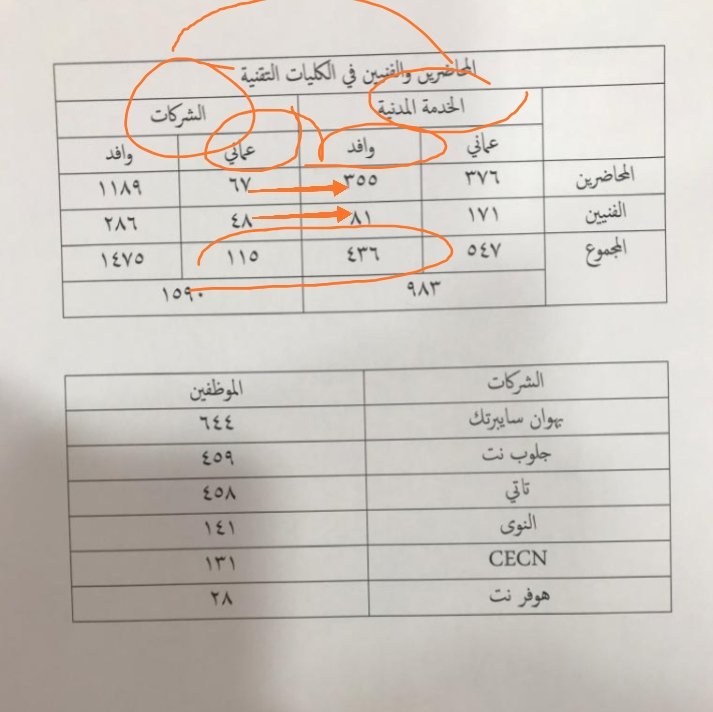 المحاضرين والفنيين في الكليات التقنية
الخدمة المدنية الشركات
عماني وافد عماني وافد
المحاضرين ٣٧٦ ٣٥٥ ٦٧ ١١٨٩
الفنيين ١٧١ ٨١ ٤٨ ٢٨٦
المجموع ٥٤٧ ٤٣٦ ١١٥ ١٤٧٥
٩٨٣ ١٥٩٠
الشركات الموظفين
بهوان سايبرتك ٦٤٤
جلوب نت ٤٥٩
تاتي ٤٥٨
النوى ١٤١
CECN ١٣١
هوفر نت ٢٨